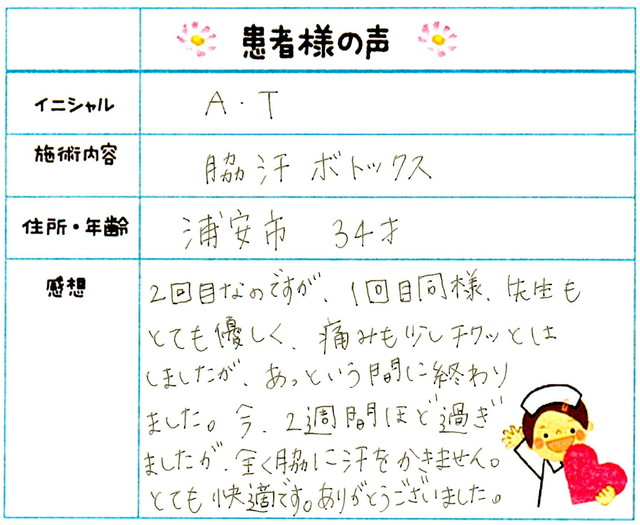 患者様の声
イニシャル
A・T
施術内容
脇汗 ボトックス
住所・年齢
浦安市 34才
感想
2回目なのですが、1回目同様、先生も
とても優しく、痛みも少しチクッとは
しましたが、あっという間に終わり
ました。今、2週間ほど過ぎ
ましたが、全く脇に汗をかきません。
とても快適です。ありがとうございました。